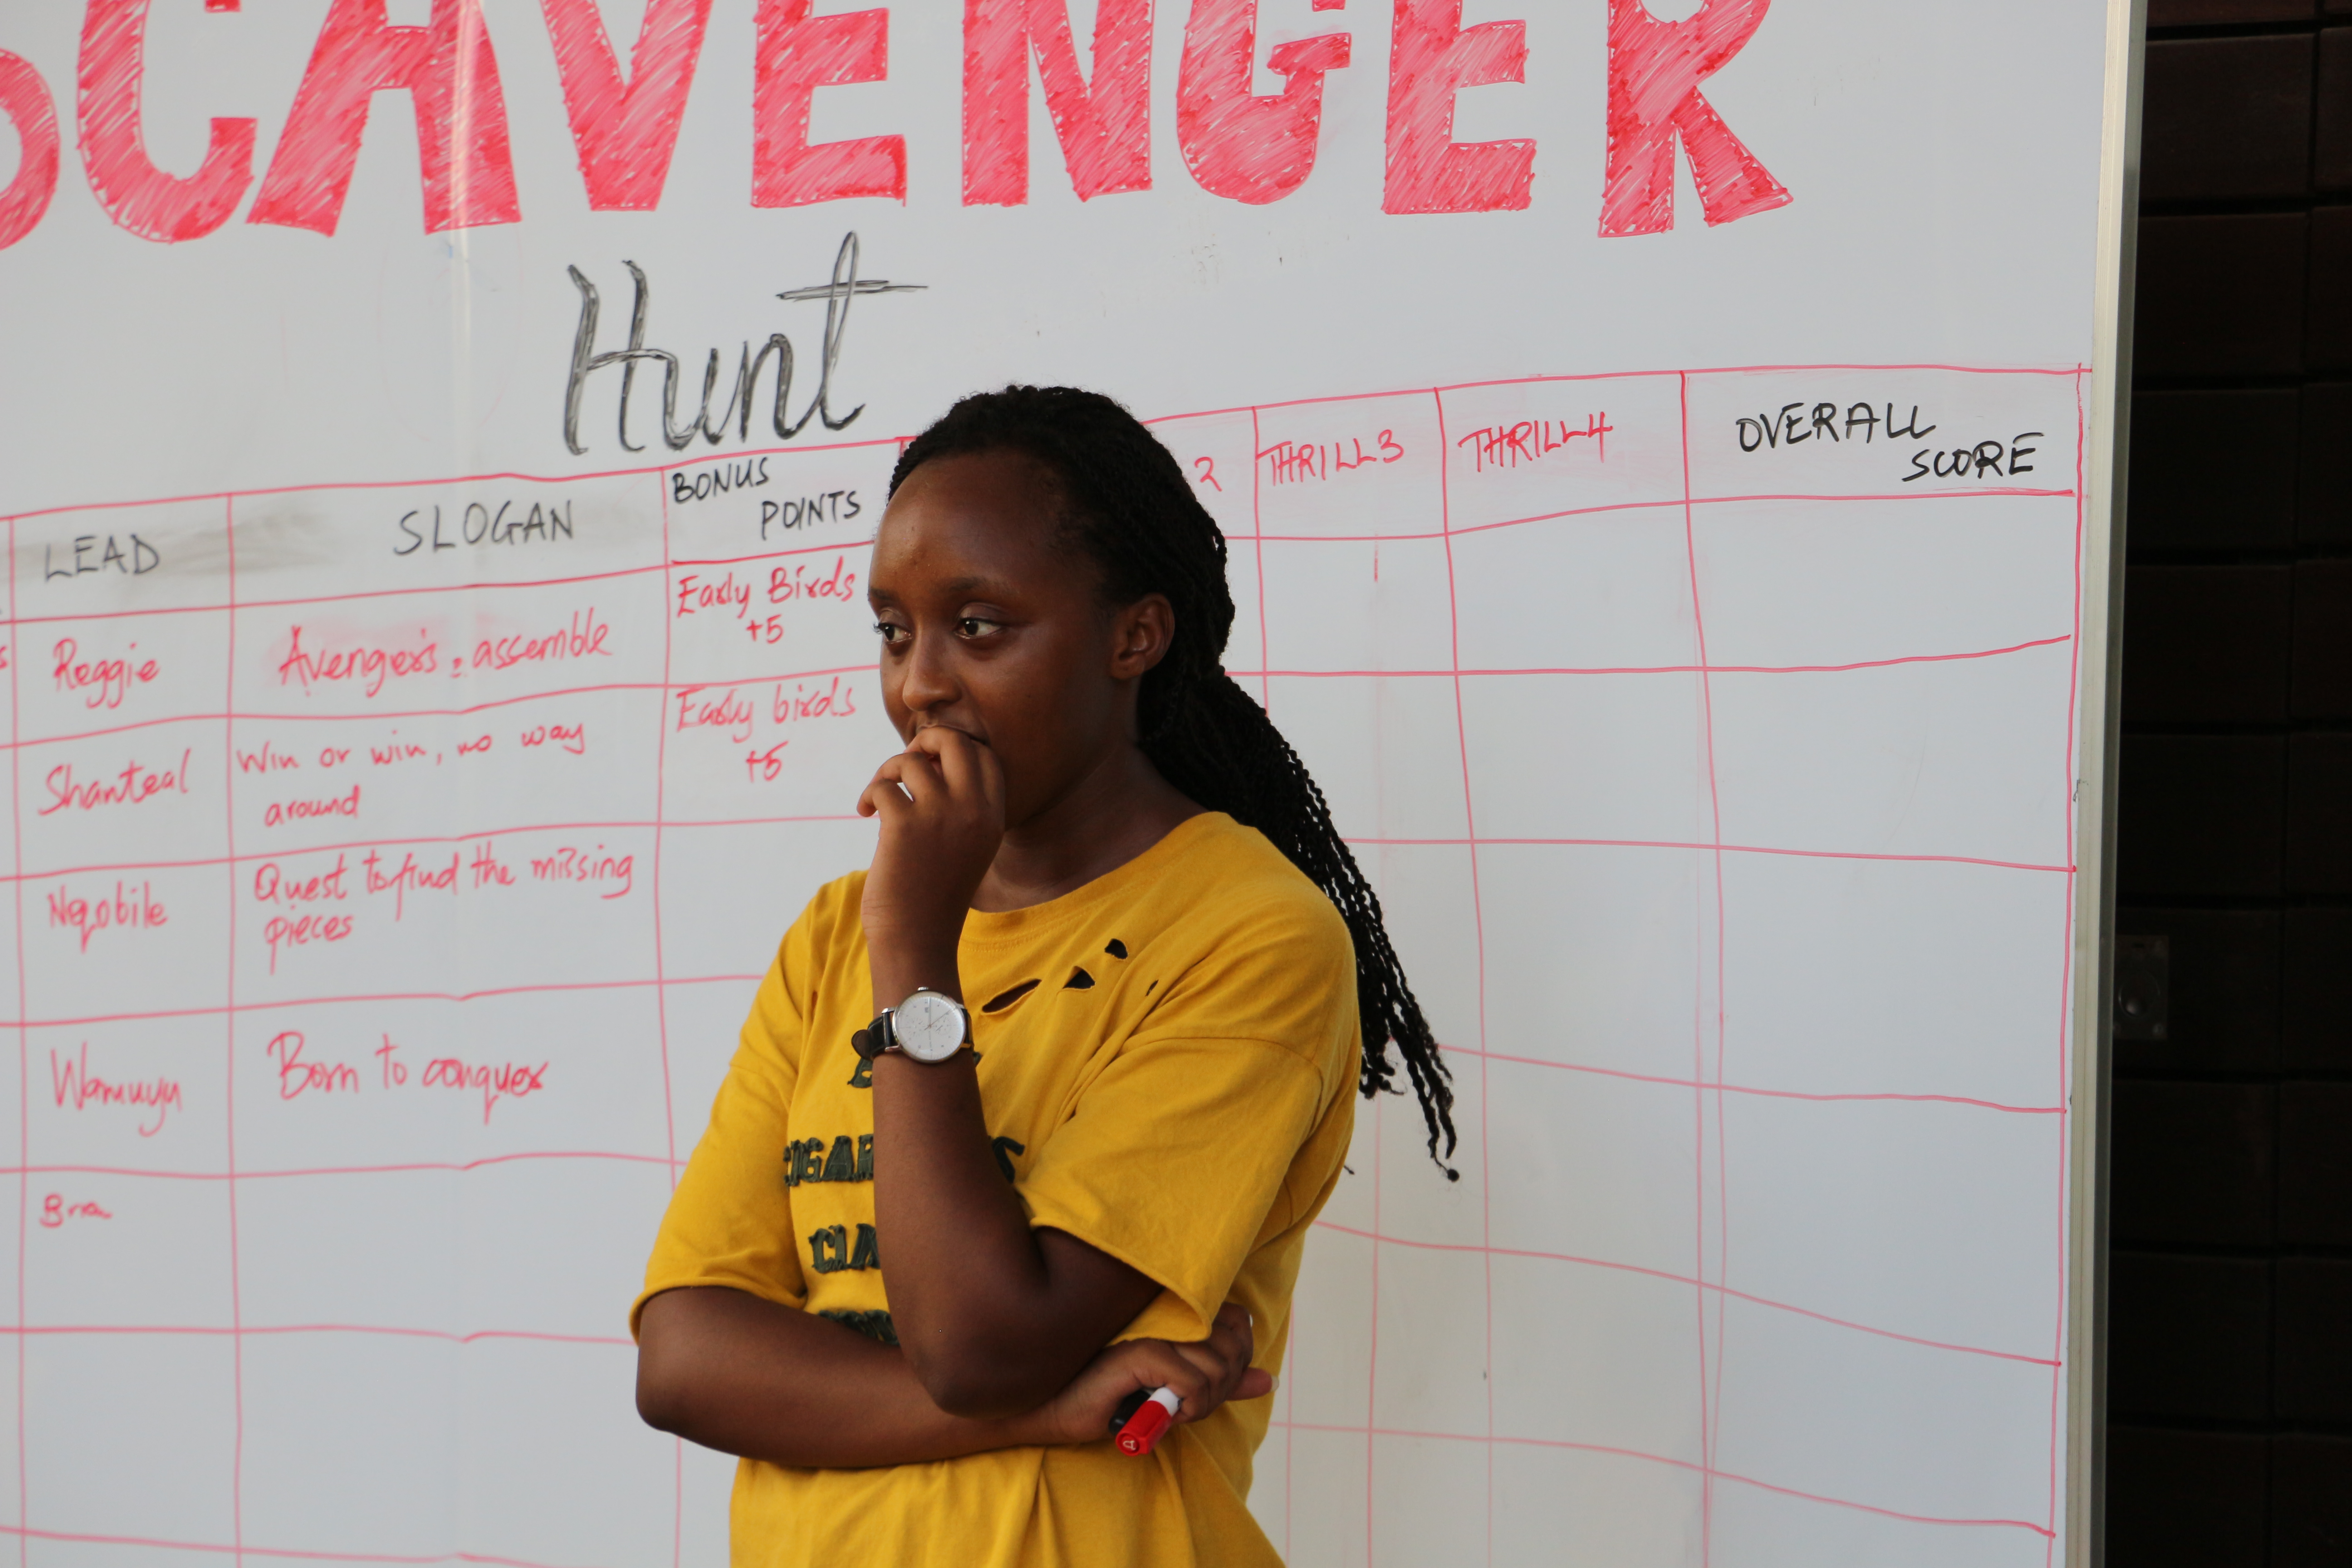 SCAVENGER
Hunt
LEAD
SLOGAN
BONUS
POINTS
2
THRILL3
THRILL4
OVERALL
SCORE
Reggie
Avengers: assemble
Early Birds
+5
Shanteal
Win or win, no way
around
Early birds
+5
Nqobile
Quest to find the missing
pieces
Wamuyu
Born to conquer
Bria